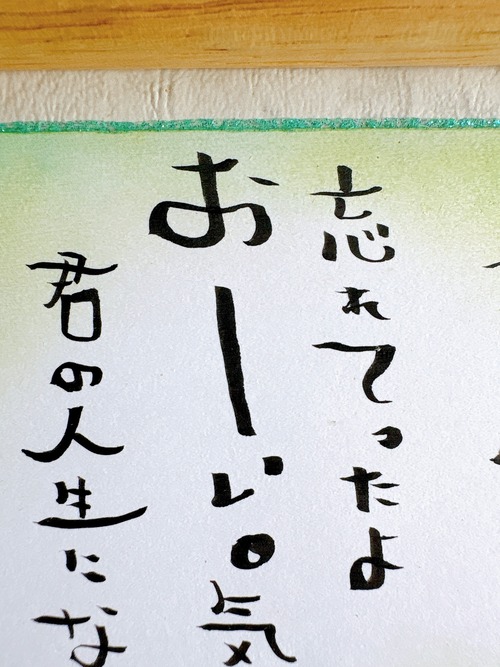 忘れてったよ
おーい。気
君の人生にな